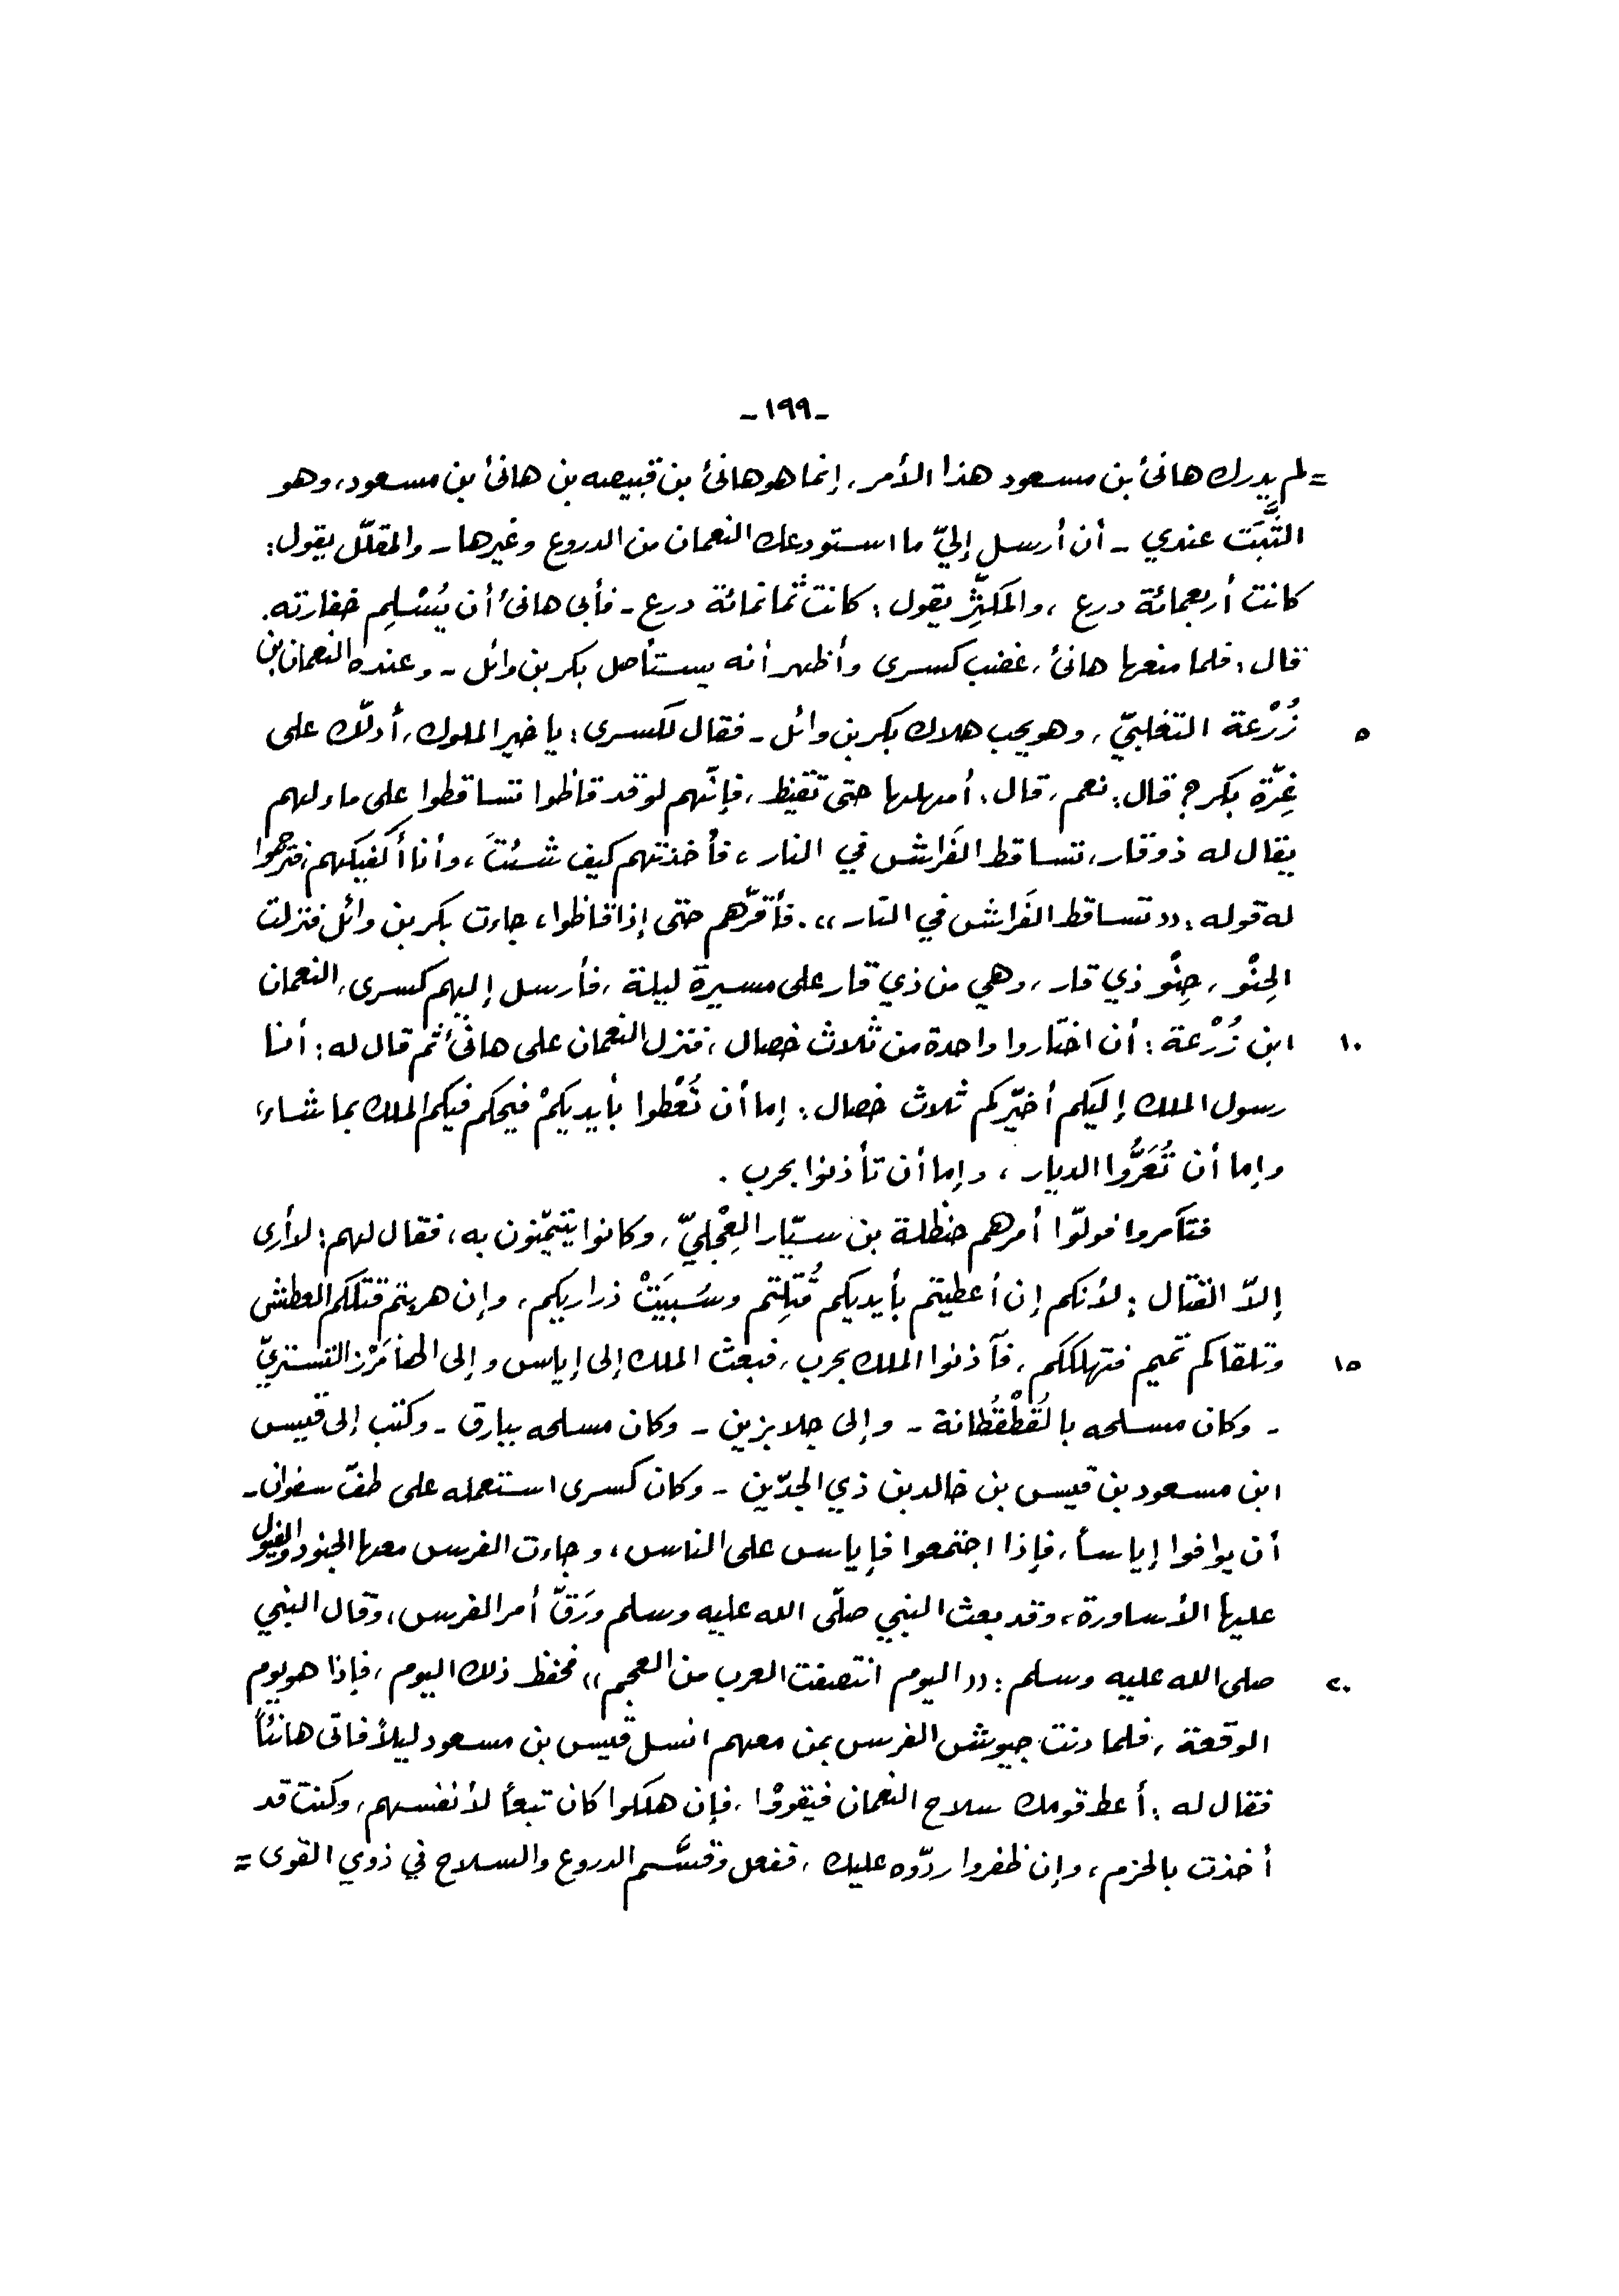 -١٩٩-
= لم يدرك هانئ بن مسعود هذا الأمر، إنما هو هانئ بن قبيصه بن هانئ بن مسعود، وهو
الثَّبَت عندي - أن أرسل إليّ ما استودعك النعمان من الدروع وغيرها - والمقلّل يقول:
كانت أربعمائة درع، والمكثِّر يقول: كانت ثمانمائة درع - فأبى هانئ أن يُسْلِم خفارته.
قال: فلما منعها هانئ، غضب كسرى وأظهر أنه يستأصل بكر بن وائل - وعنده النعمان بن
٥ زُرْعة التغلبيّ، وهو يحب هلاك بكر بن وائل - فقال لكسرى: يا خير الملوك، أدلّك على
غِرّة بكر؟ قال: نعم، قال: أمهلها حتى تقيظ، فإنّهم لو قد قاظوا تساقطوا على ماء لهم
يقال له ذو قار، تساقط الفَراش في النار، فأخذتهم كيف شئتَ، وأنا أكفيكهم، فترجموا
له قوله: «تساقط الفَراش في النار». فأقرّهم حتى إذا قاظوا، جاءت بكر بن وائل فنزلت
الحِنْو، حِنْو ذي قار، وهي من ذي قار على مسيرة ليلة، فأرسل إليهم كسرى، النعمان
١٠ ابن زُرْعة: أن اختاروا واحدة من ثلاث خصال، فنزل النعمان على هانئ ثم قال له: أنا
رسول الملك إليكم أخيّركم ثلاث خصال: إما أن تُعْطوا بأيديكمْ فيحكم فيكم الملك بما شاء،
وإما أن تُعَرُّوا الديار، وإما أن تأذنوا بحرب.
فتآمروا فولّوا أمرهم حنظلة بن سيّار العِجْليّ، وكانوا يتيمّنون به، فقال لهم: لا أرى
إلاّ القتال: لأنكم إن أعطيتم بأيديكم قُتِلتم وسُبِيَتْ ذراريكم، وإن هربتم قتلكم العطش
١٥ وتلقاكم تميم فتهلككم، فآذنوا الملك بحرب، فبعث الملك إلى إياس وإلى الهامَرْز التستريّ
- وكان مسلحه بالقُطْقُطانة - وإلى جلابزين - وكان مسلحه ببارق - وكتب إلى قيس
ابن مسعود بن قيس بن خالد بن ذي الجدّين - وكان كسرى استعمله على طفّ سفوان -
أن يوافوا إياساً، فإذا اجتمعوا فإياس على الناس، وجاءت الفرس معها الجنود والفيول
عليها الأساورة، وقد بعث النبي صلّى الله عليه وسلم ورَقّ أمر الفرس، وقال النبي
٢٠ صلى الله عليه وسلم: «اليوم انتصفت العرب من العجم» فحفظ ذلك اليوم، فإذا هو يوم
الوقعة، فلما دنت جيوش الفرس بمن معهم انسل قيس بن مسعود ليلاً فأتى هانئاً
فقال له: أعط قومك سلاح النعمان فيقووْا، فإن هلكوا كان تبعاً لأنفسهم، وكنت قد
أخذت بالحزم، وإن ظفروا ردّوه عليك، ففعل وقسَّم الدروع والسلاح في ذوي القوى =